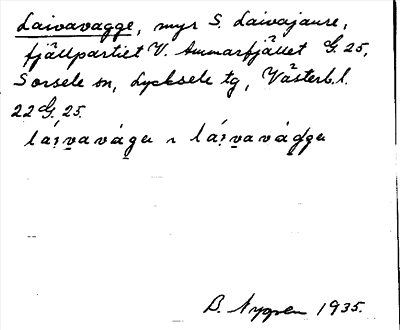 Laivavagge, myr S. Laivajaure,
fjällpartiet V. Ammarfjället G. 25,
Sorsele sn, Lycksele tg, Västerb. l.
22 G. 25.
B. Nygren 1935.